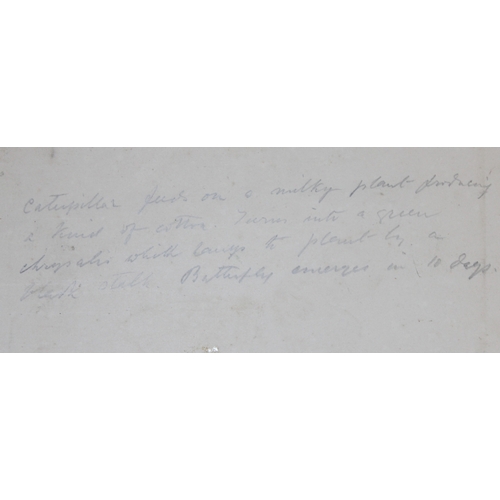 caterpillar feeds on a milky plant producing
a kind of cotton. Turns into a green
chrysalis which hangs to plant by a
black stalk. Butterfly emerges in 10 days.